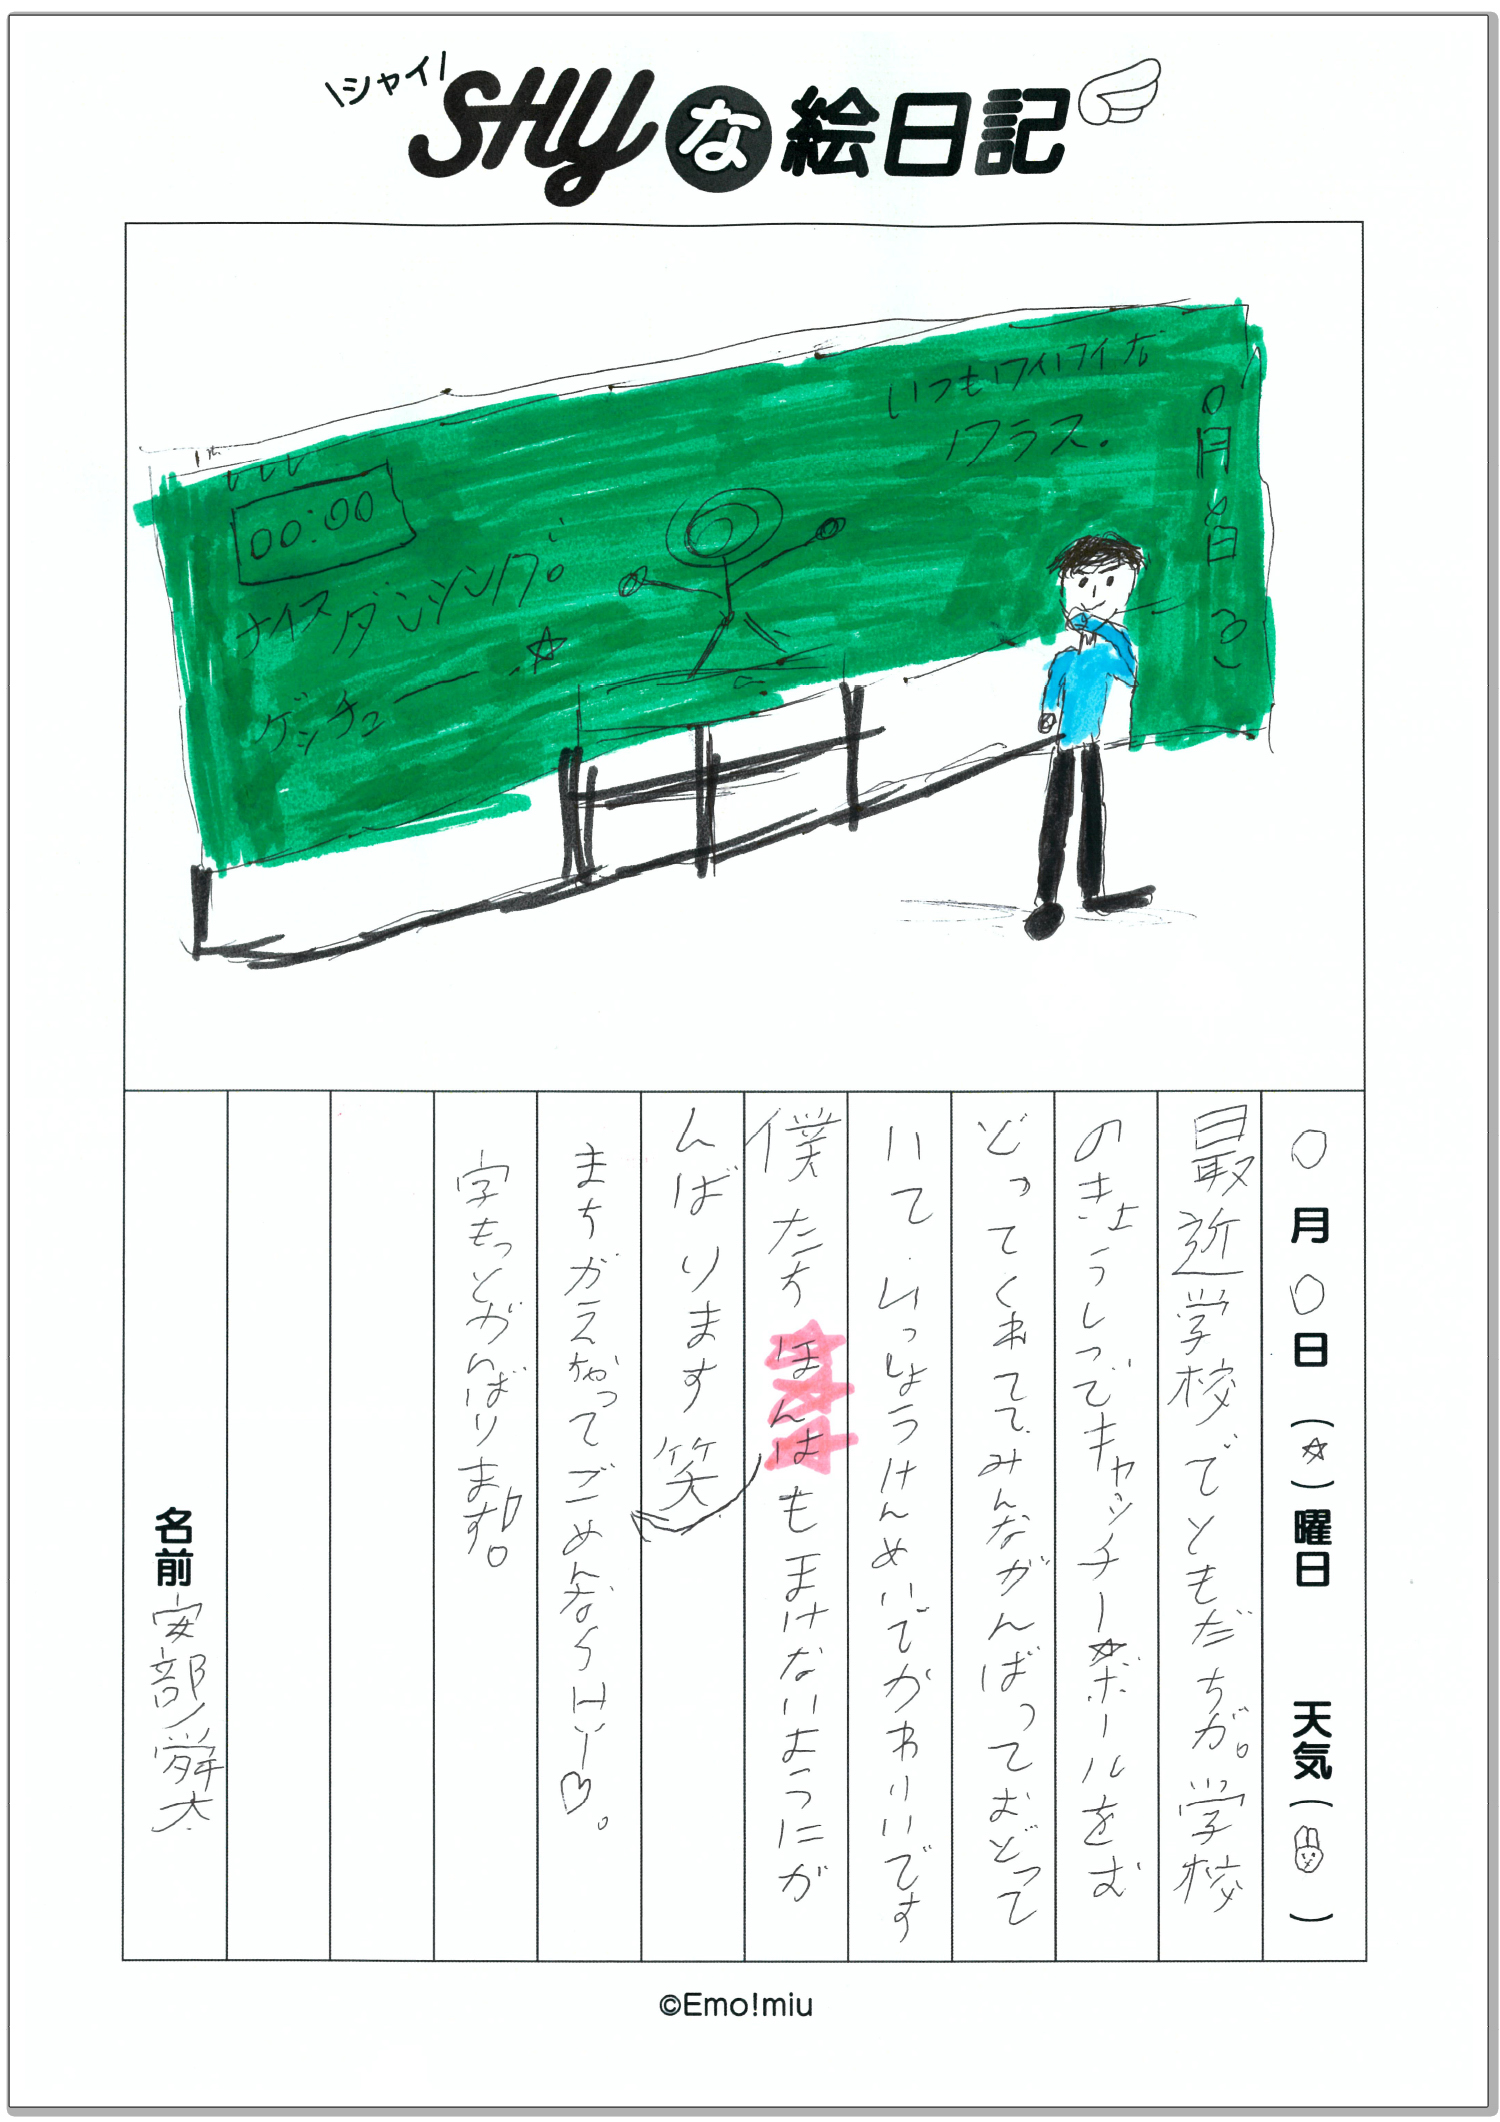 \シャイ/
SHYな絵日記
いつもワイワイな
クラス。
〇月
日
00:00
ナイス
ダンシング
ゲッチュー ☆
〇月〇日(☆)曜日 天気( )
最近学校でともだちが。学校
のきょうしつでキャッチー☆ボールをむ
どってくれてて、みんながんばっておどって
いて、いっしょうけんめいでかわいいです
僕たちほんはもまけないようにが
んばります笑
まちがえちゃってごめんなSHY♡。
字もっとがんばります。
名前 安部舜太
©Emo!miu